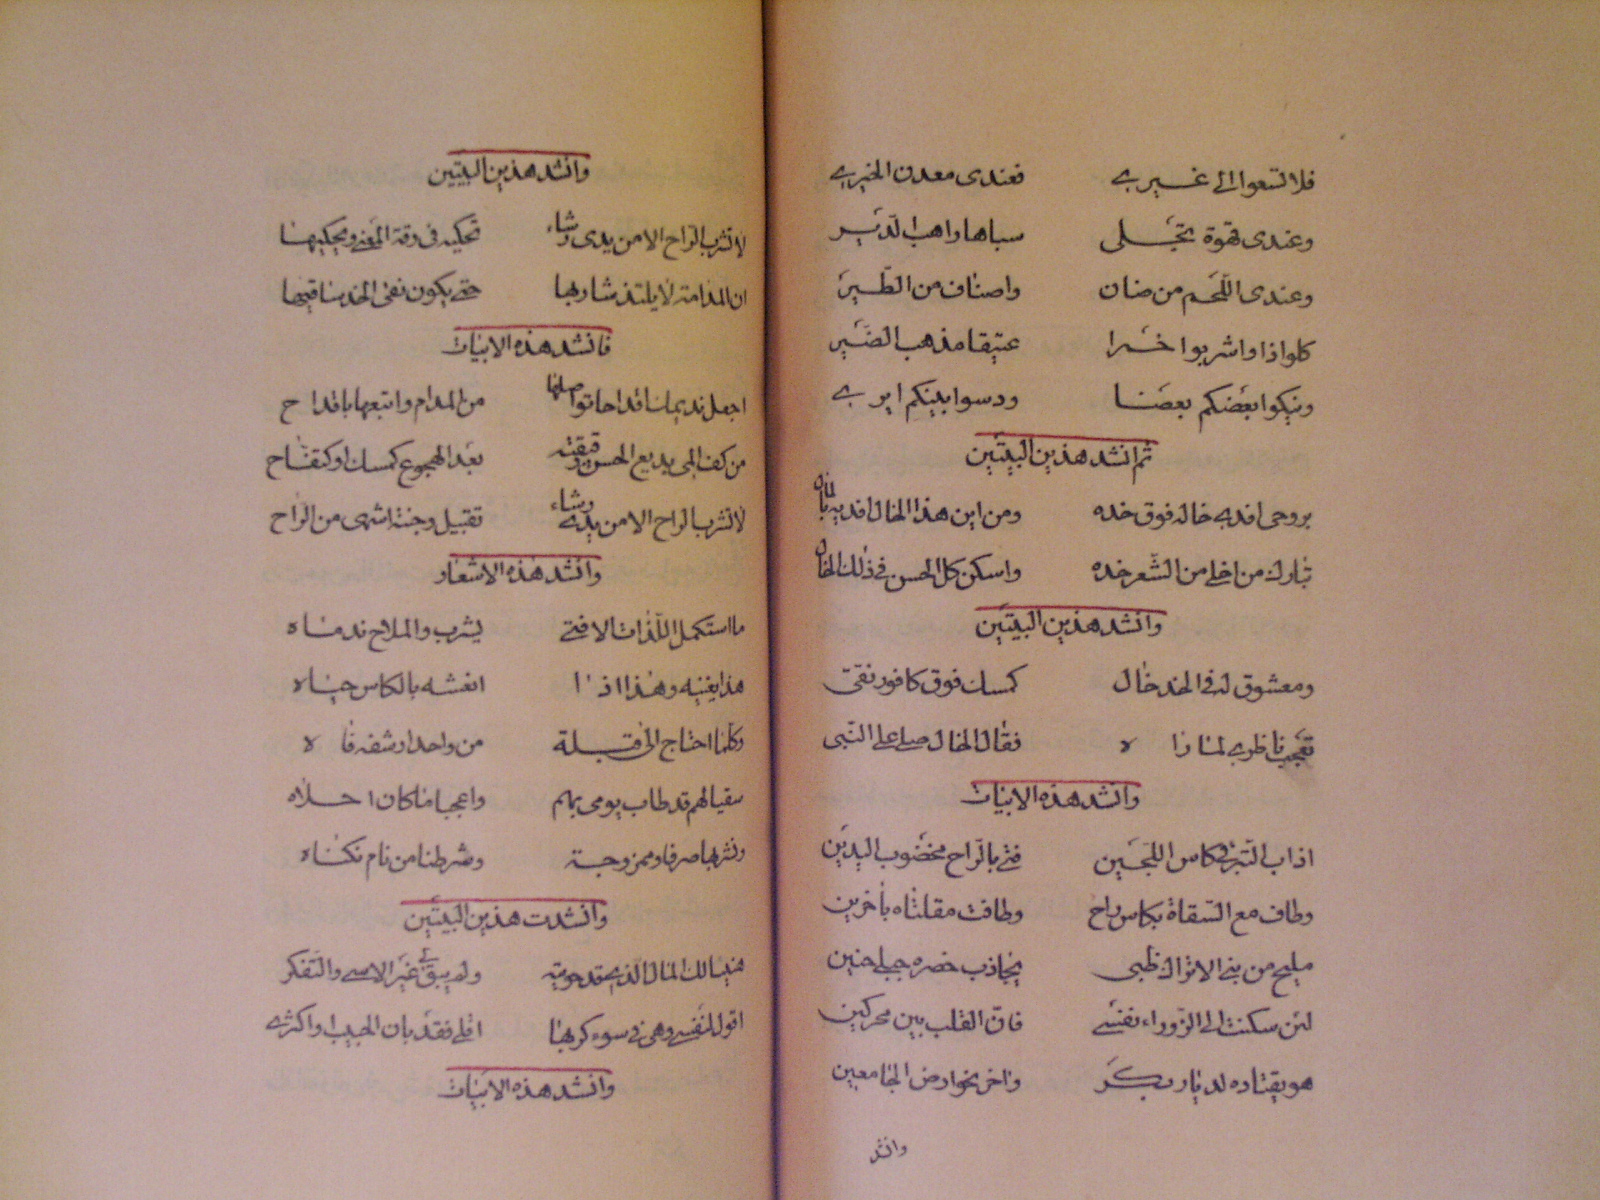 فلا تسعوا الى غيرى فعندى معدن الخيرى
وعندى قهوة تجلى سباها راهب الدير
وعندى اللحم من ضان واصناف من الطير
كلوا ذا واشربوا خمرا عتيقا مذهب الضير
ونيكوا بعضكم بعضا ودسوا بينكم ايرى
ثم انشد هذين البيتين
بروحى افديه خاله فوق خده ومن اين هذا الخال افديه بالمال
تبارك من اخلى من الشعر خده واسكن كل الحسن فى ذلك الخال
وانشد هذين البيتين
ومعشوق له فى الخد خال كمسك فوق كافور نقى
تعجب ناظرى لما راه فقال الخال صلى على النبى
وانشد هذه الابيات
اذاب التبر فى كاس اللجين فتى بالراح مخضوب اليدين
وطاف مع السقاة بكاس راح وطافت مقلتاه باخرين
مليح من بنى الاتراك ظبى يجاذب خصره جبلى حنين
لئن سكنت الى الزوراء نفسى فان القلب بين محركين
هو يقتاده لديار بكر واخر نحو ارض الجامعين
وانشد
وانشد هذين البيتين
لا تشرب الراح الا من يدى رشاء تحكيه فى رقة المعنى ويحكيها
ان المدامة لا يلتذ شاربها حتى يكون نقى الخد ساقيها
فانشد هذه الابيات
اجعل نديمك اقداحا تواصلها من المدام واتبعها باقداح
من كف المى بديع الحسن ريقته بعد الهجوع كمسك او كتفاح
لا تشرب الراح الا من يدى رشاء تقبيل وجنته اشهى من الراح
وانشد هذه الاشعار
ما استكمل اللذات الا فتى يشرب والملاح ندماه
هذا يغنيه وهذا اذا انعشه بالكاس حياه
وكلما احتاج الى قبلة من واحد ارشفه فاه
سقيا لهم قد طاب يومى بهم واعجبا ما كان احلاه
ونشربها صرفا وممزوجة وشرطنا من نام نكناه
وانشدت هذين البيتين
هنيا لك المال الذى قد حويته ولم يبق لى غير الاسى والتفكر
اقول لنفسى وهى فى سوء كربها اقلى فقد بان الحبيب او اكثرى
وانشد هذه الابيات